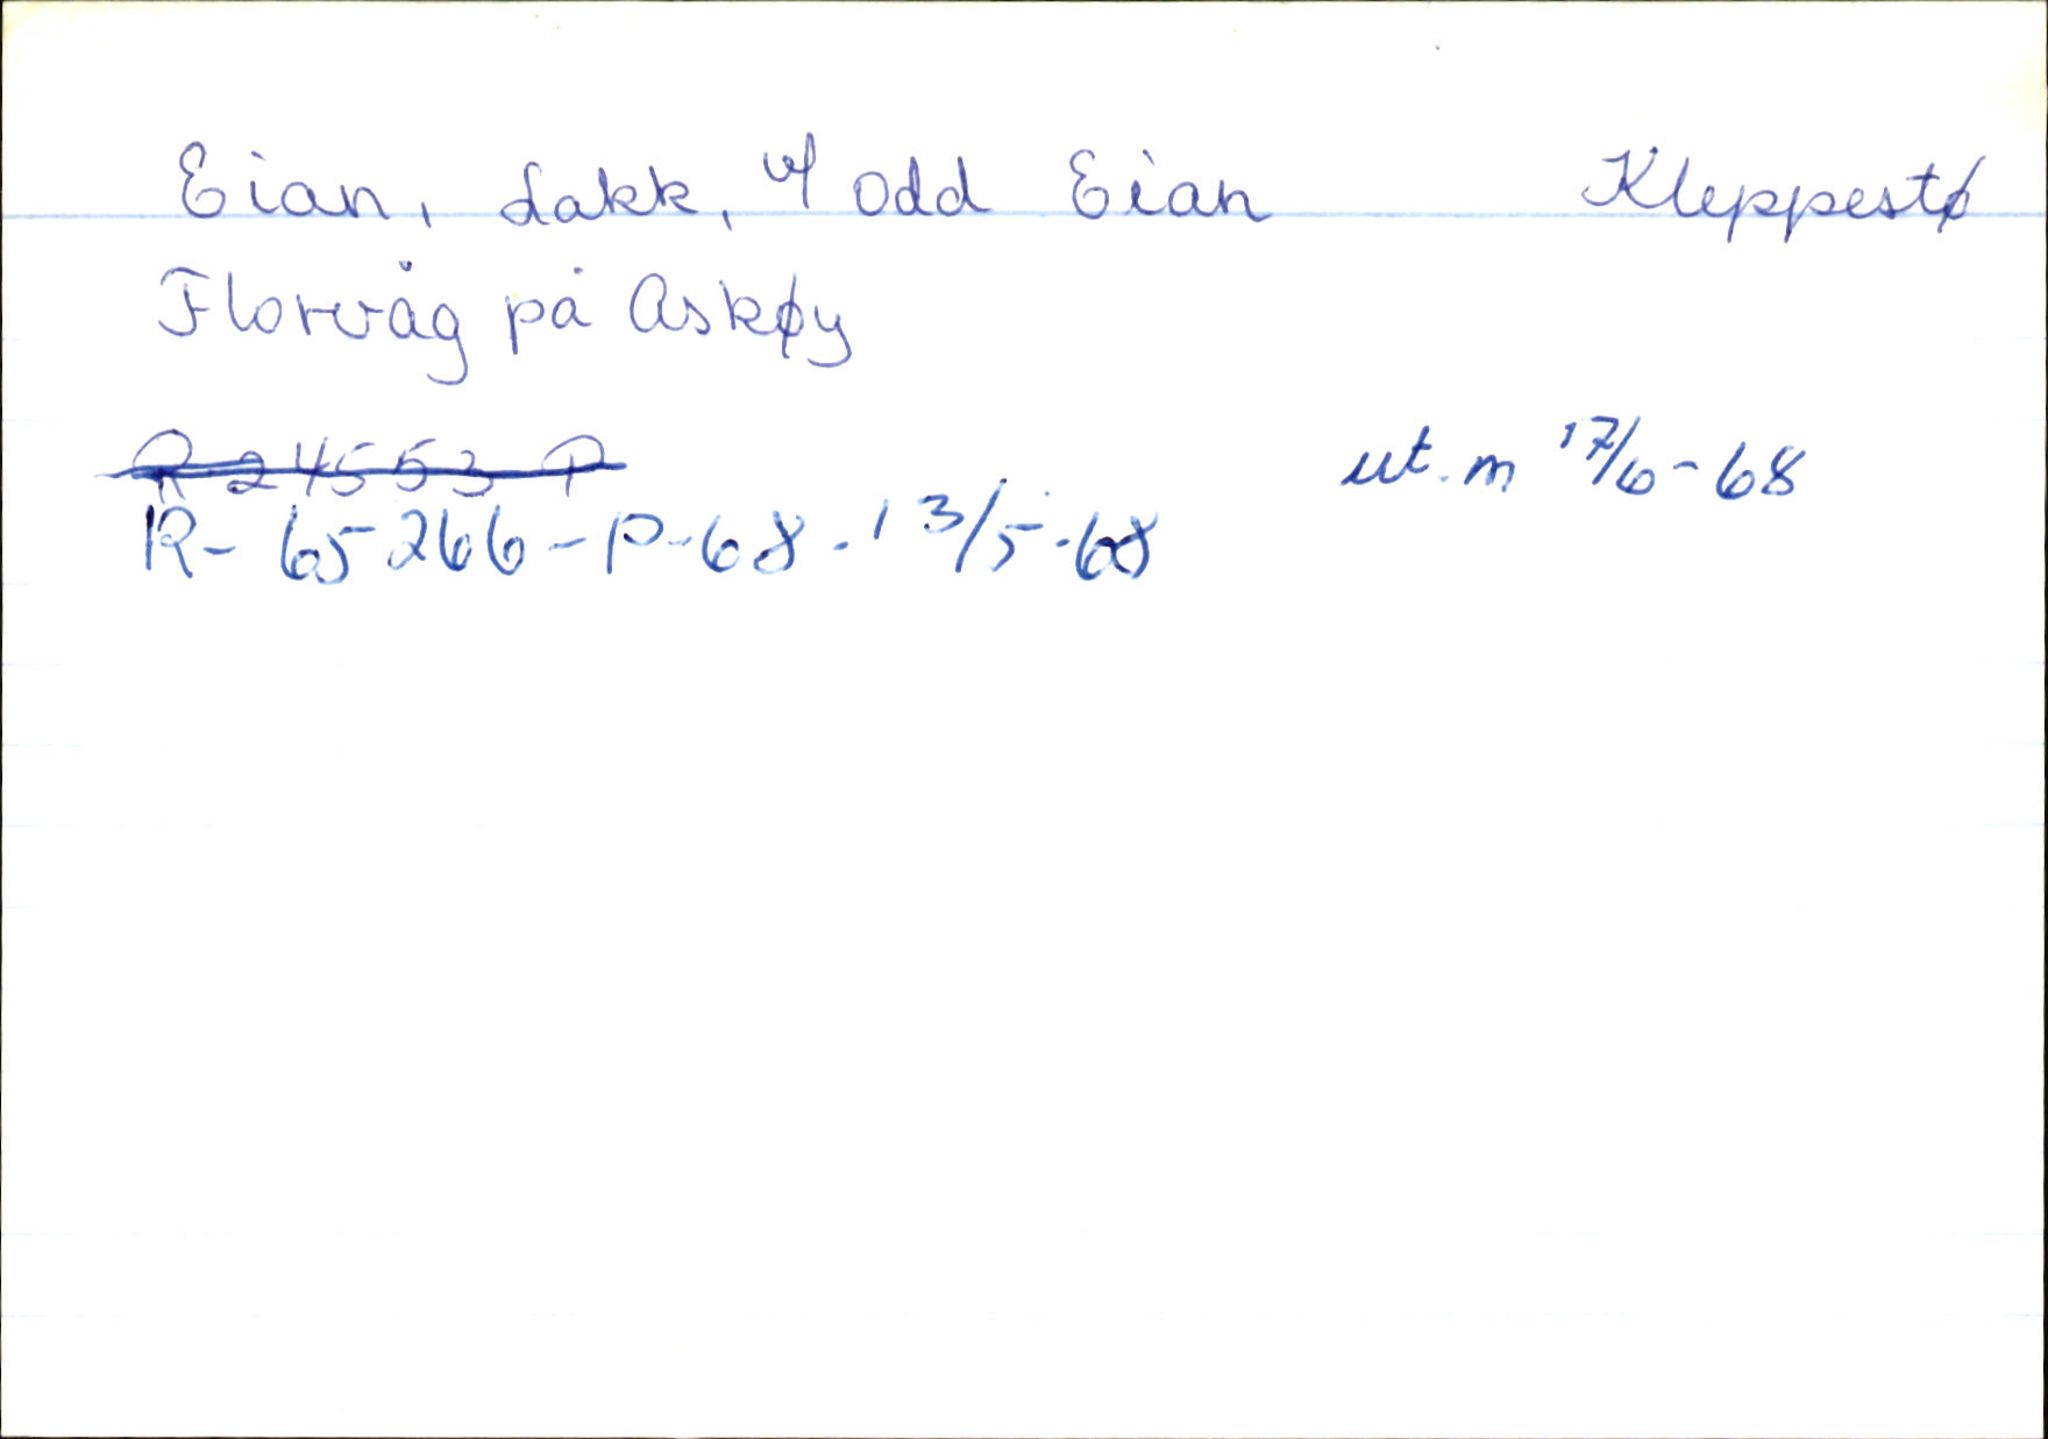 Eian, Lakk, v/ Odd Eian Kleppestø
Florvåg på Askøy
R 24553 P ut. m 17/6-68
R-65266-P-68. 13/5-68